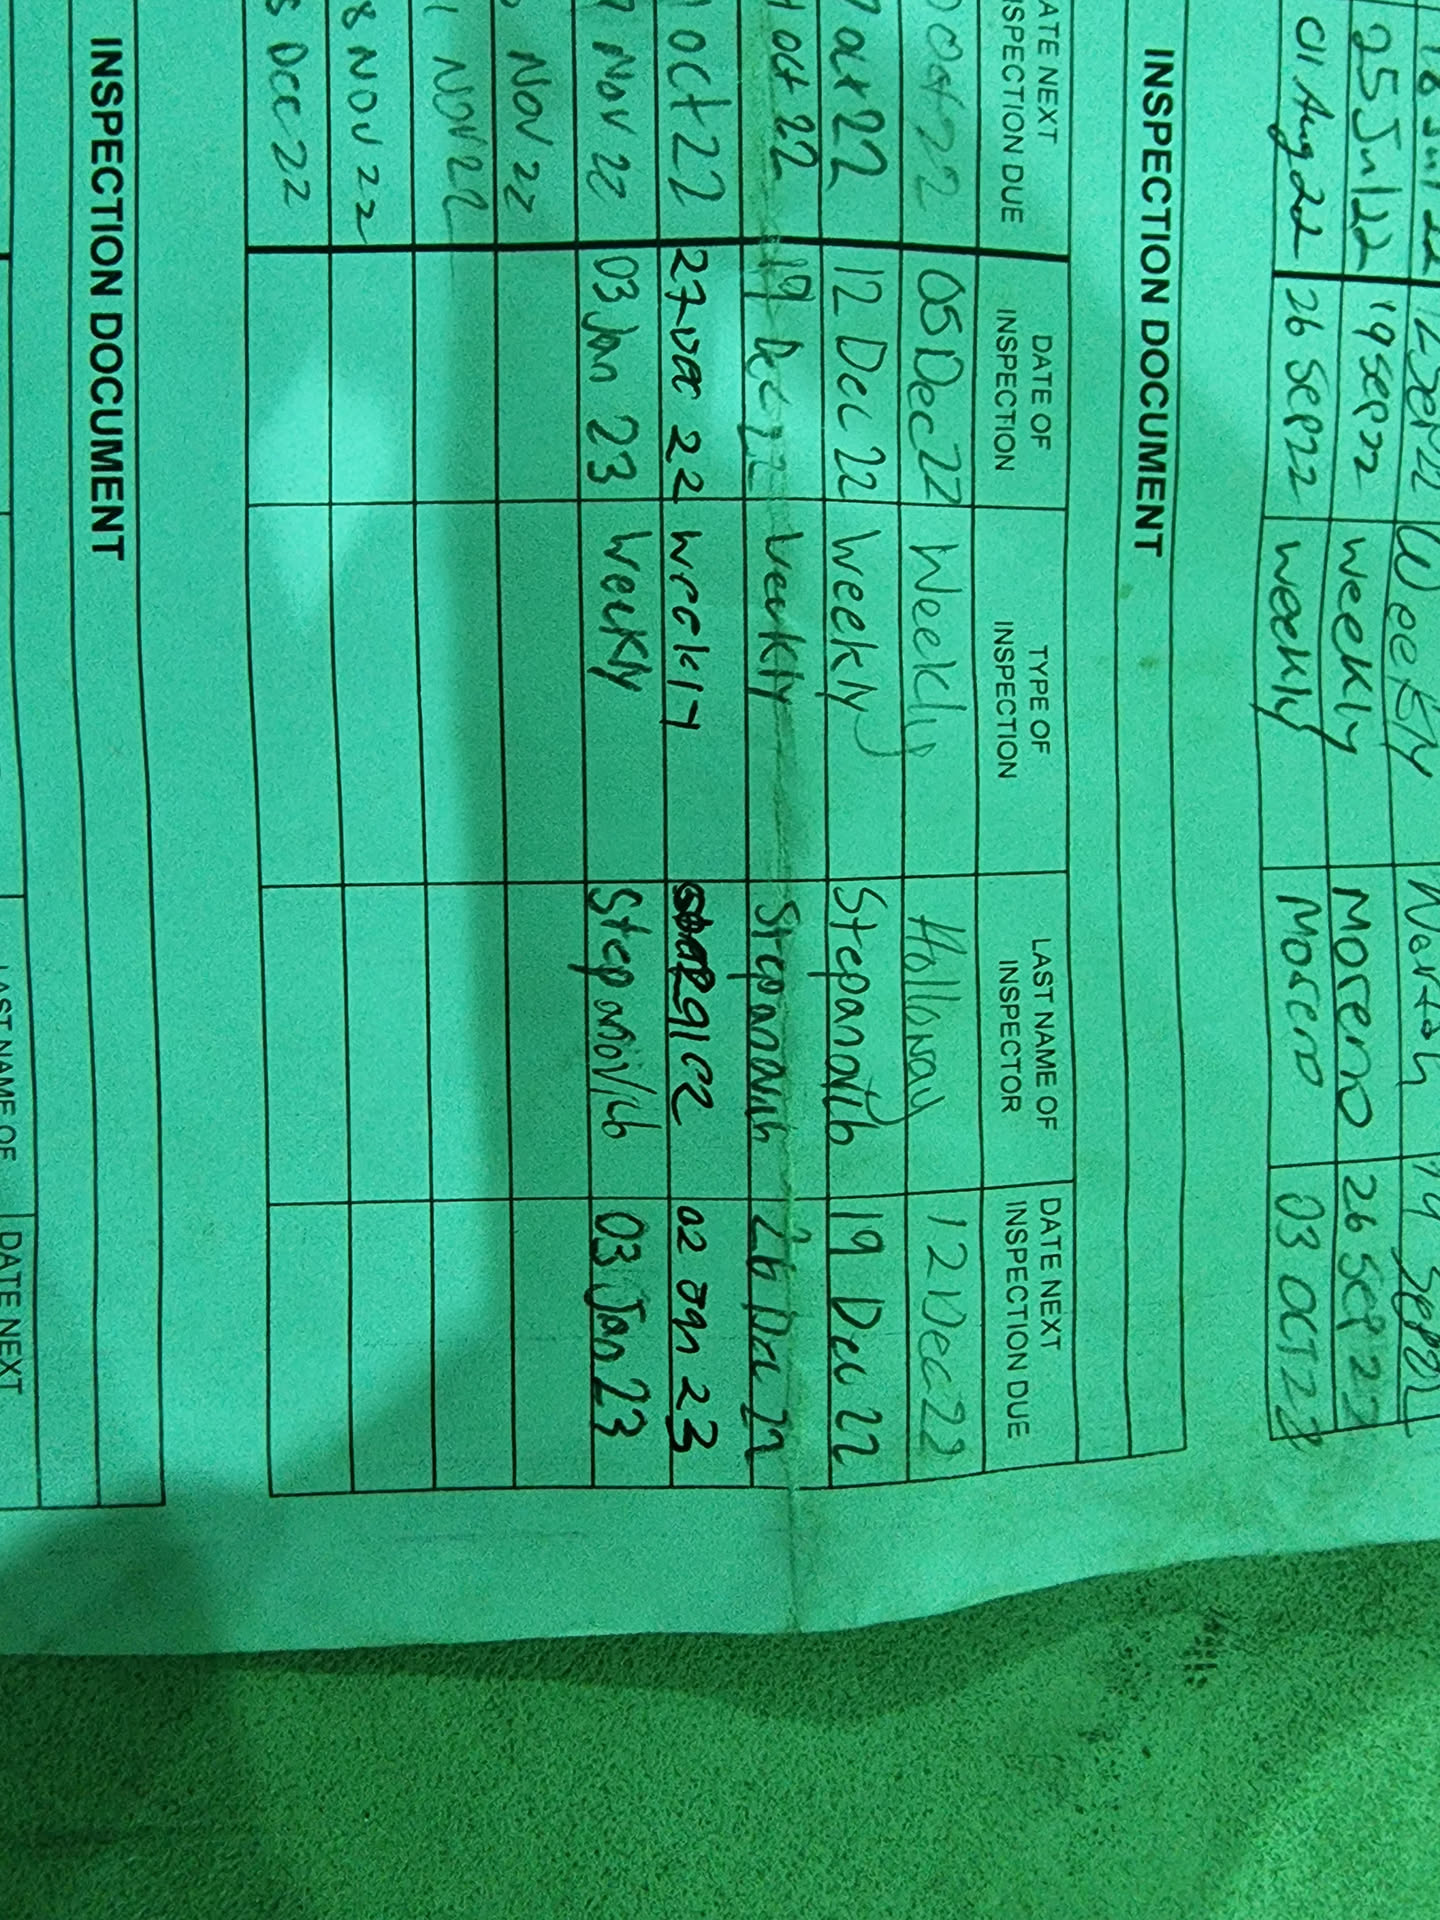 18 Jul 22 12 Sep 22 Weekly
25 Jul 22 19 Sep 22 Weekly Moreno 26 Sep 22
01 Aug 22 26 Sep 22 Weekly Moreno 03 OCT 22
INSPECTION DOCUMENT
DATE NEXT INSPECTION DUE
DATE OF INSPECTION
TYPE OF INSPECTION
LAST NAME OF INSPECTOR
DATE NEXT INSPECTION DUE
Oct 22 05 Dec 22 Weekly Holloway 12 Dec 22
Oct 22 12 Dec 22 Weekly Stepanovih 19 Dec 22
Oct 22 19 Dec 22 Weekly 26 Dec 22
Oct 22 22 Weekly 02 23
Nov 22 03 Jan 23 Weekly 03 Jan 23
Nov 22
Nov 22
8 Nov 22
5 Dec 22
INSPECTION DOCUMENT
LAST NAME OF
DATE NEXT